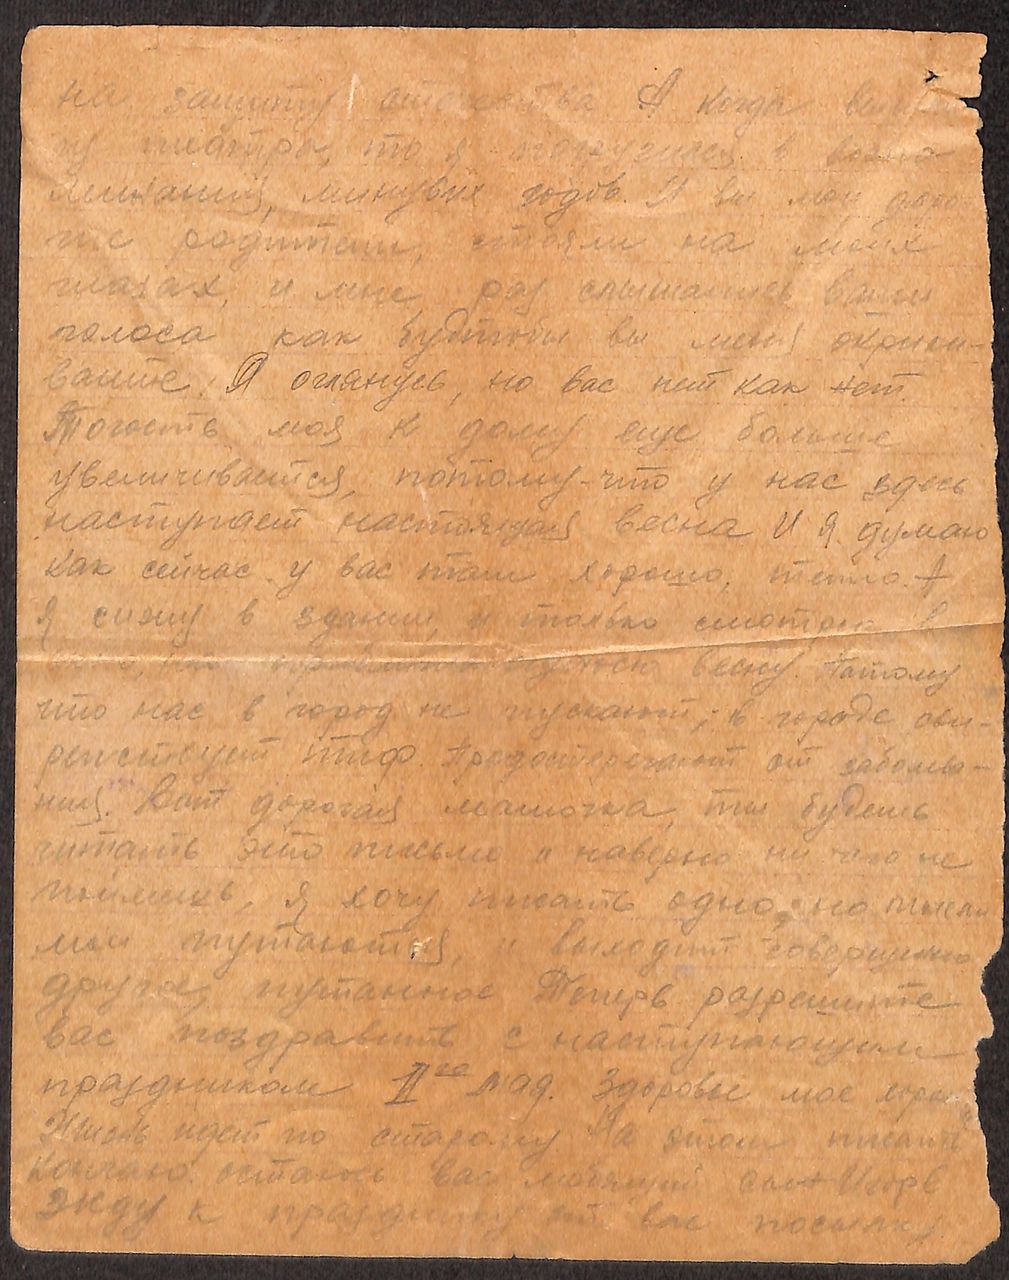 на защиту отечества А когда
ну театра, то я погрузился в воспо
минания, минувих годов. И вы мои доро
гие родители, стояли на моих
глазах, и мне раз слышались ваши
голоса как будтобы вы меня окрики-
ваите. Я оглянусь, но вас нет как нет.
Тогость моя к дому еще больше
увеличивается, потому-что у нас здесь
наступает настоящая весна И я думаю
как сейчас у вас там хорошо, тепло. А
я сижу в здании, и только смотрю в
весну. Потому
что нас в город не пускают, в городе сви-
репствует тиф. Предостерегают от заболева-
ния. Вот дорогая мамочка, ты будешь
читать это письмо и наверно ни чго не
поймешь, я хочу писать одно, но мысли
мои путаются, и выходит совершенно
другое, путанное Теперь разрешите
вас поздравить с наступающим
праздником I го мая. Здоровье мое хоро
Жизнь идет по старому На этом писать
кончаю. остаюсь ваш любящий сын Игорь
Жду к празднику от вас посылку